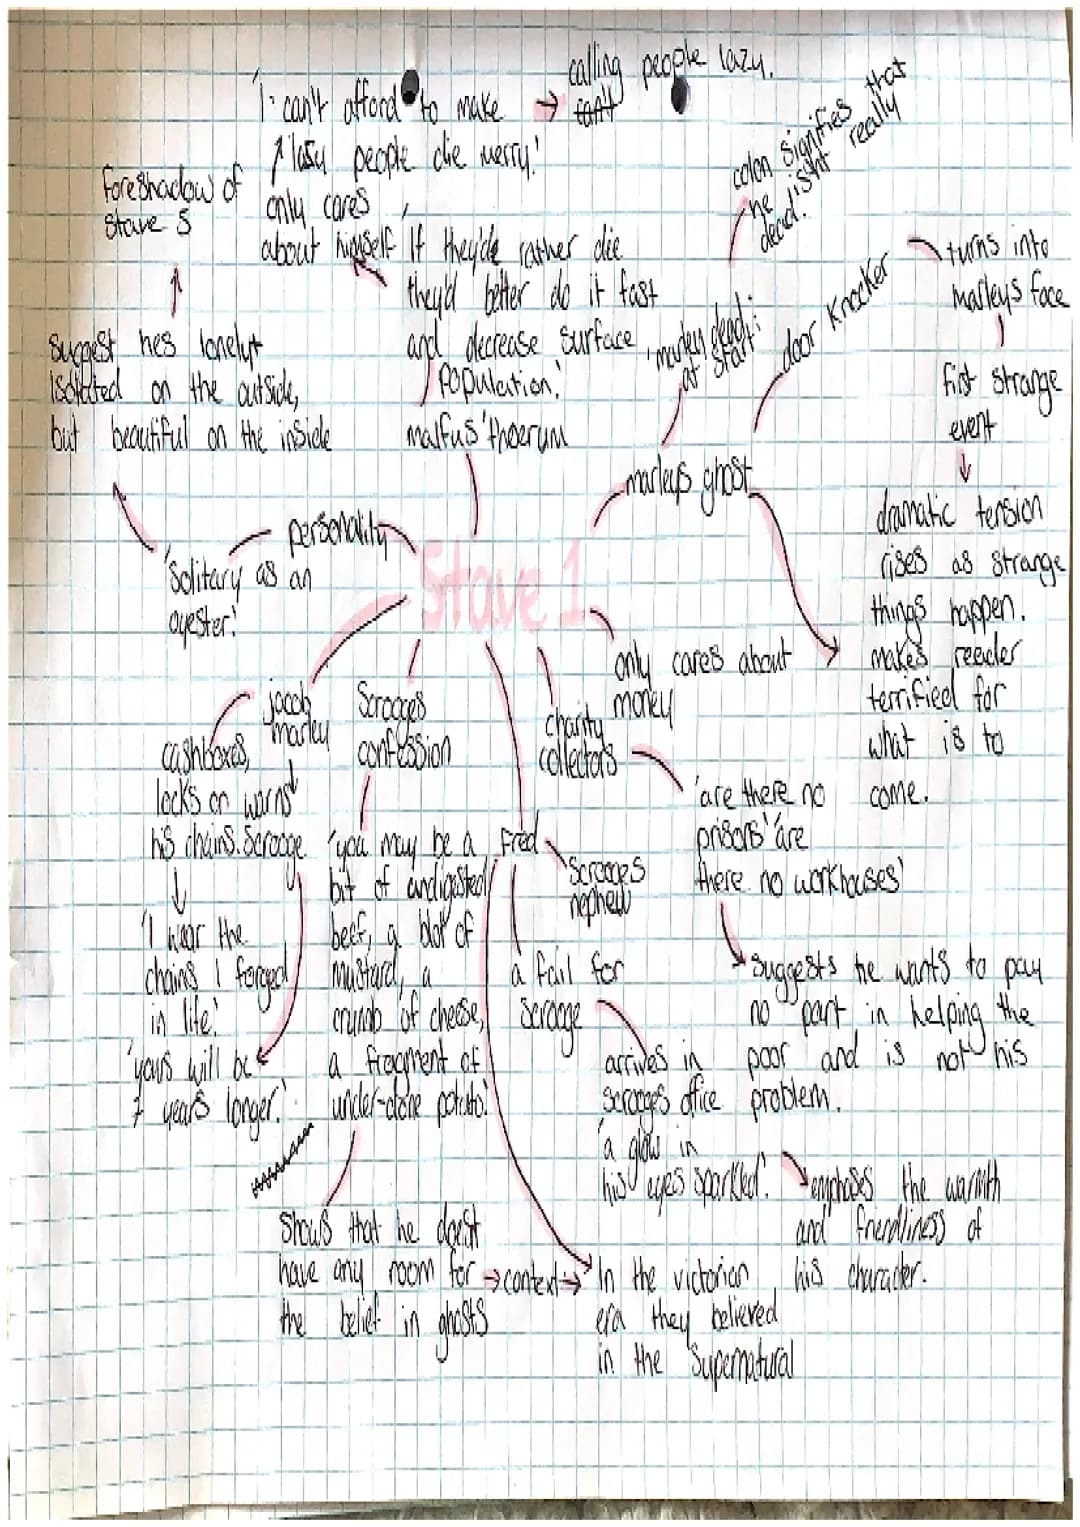 'I can't afford to make
lasy people die merry.'
→ calling people lazy.
can't
only cares
about himself
foreshadow of
Stave 5
suggest hes lonely+
isolated on the outside,
but beautiful on the inside
'If they'de rather die
they'd better do it fast
and decrease surface
population.'
malfus' thoerum
colon signifies that
he isnt really
dead.
'marley dead:'
at start
door knocker
turns into
Marleys face
first strange
event
dramatic tension
rises as strange
things happen.
makes reader
terrified for
what is to
come.
marleys ghost
personality
'Solitary as an
oyester.'
Stave 1
only cares about
money
jacob
marley
Scrooges
confession
charity
collectors
cashboxes,
locks on
his chains.
warns
Scrooge
'I wear the
chains I forged
in life.'
'yours will be
7 years longer.'
'you may be a
bit of undigested
beef, a blot of
mustard, a
crumb of cheese,
a fragment of
under-done potato.'
Fred
Scrooges
nephew
a fail for
Scrooge
'are there no
prisons' 'are
there no workhouses'
suggests he wants to pay
no part in helping the
poor and is not his
problem.
arrives in
scrooges office
'a glow in
his eyes sparkled.'
emphases the warmth
and friendliness of
his character.
Shows that he doesnt
have any room for
the belief in ghosts
→context→
In the victorian
era they believed
in the Supernatural